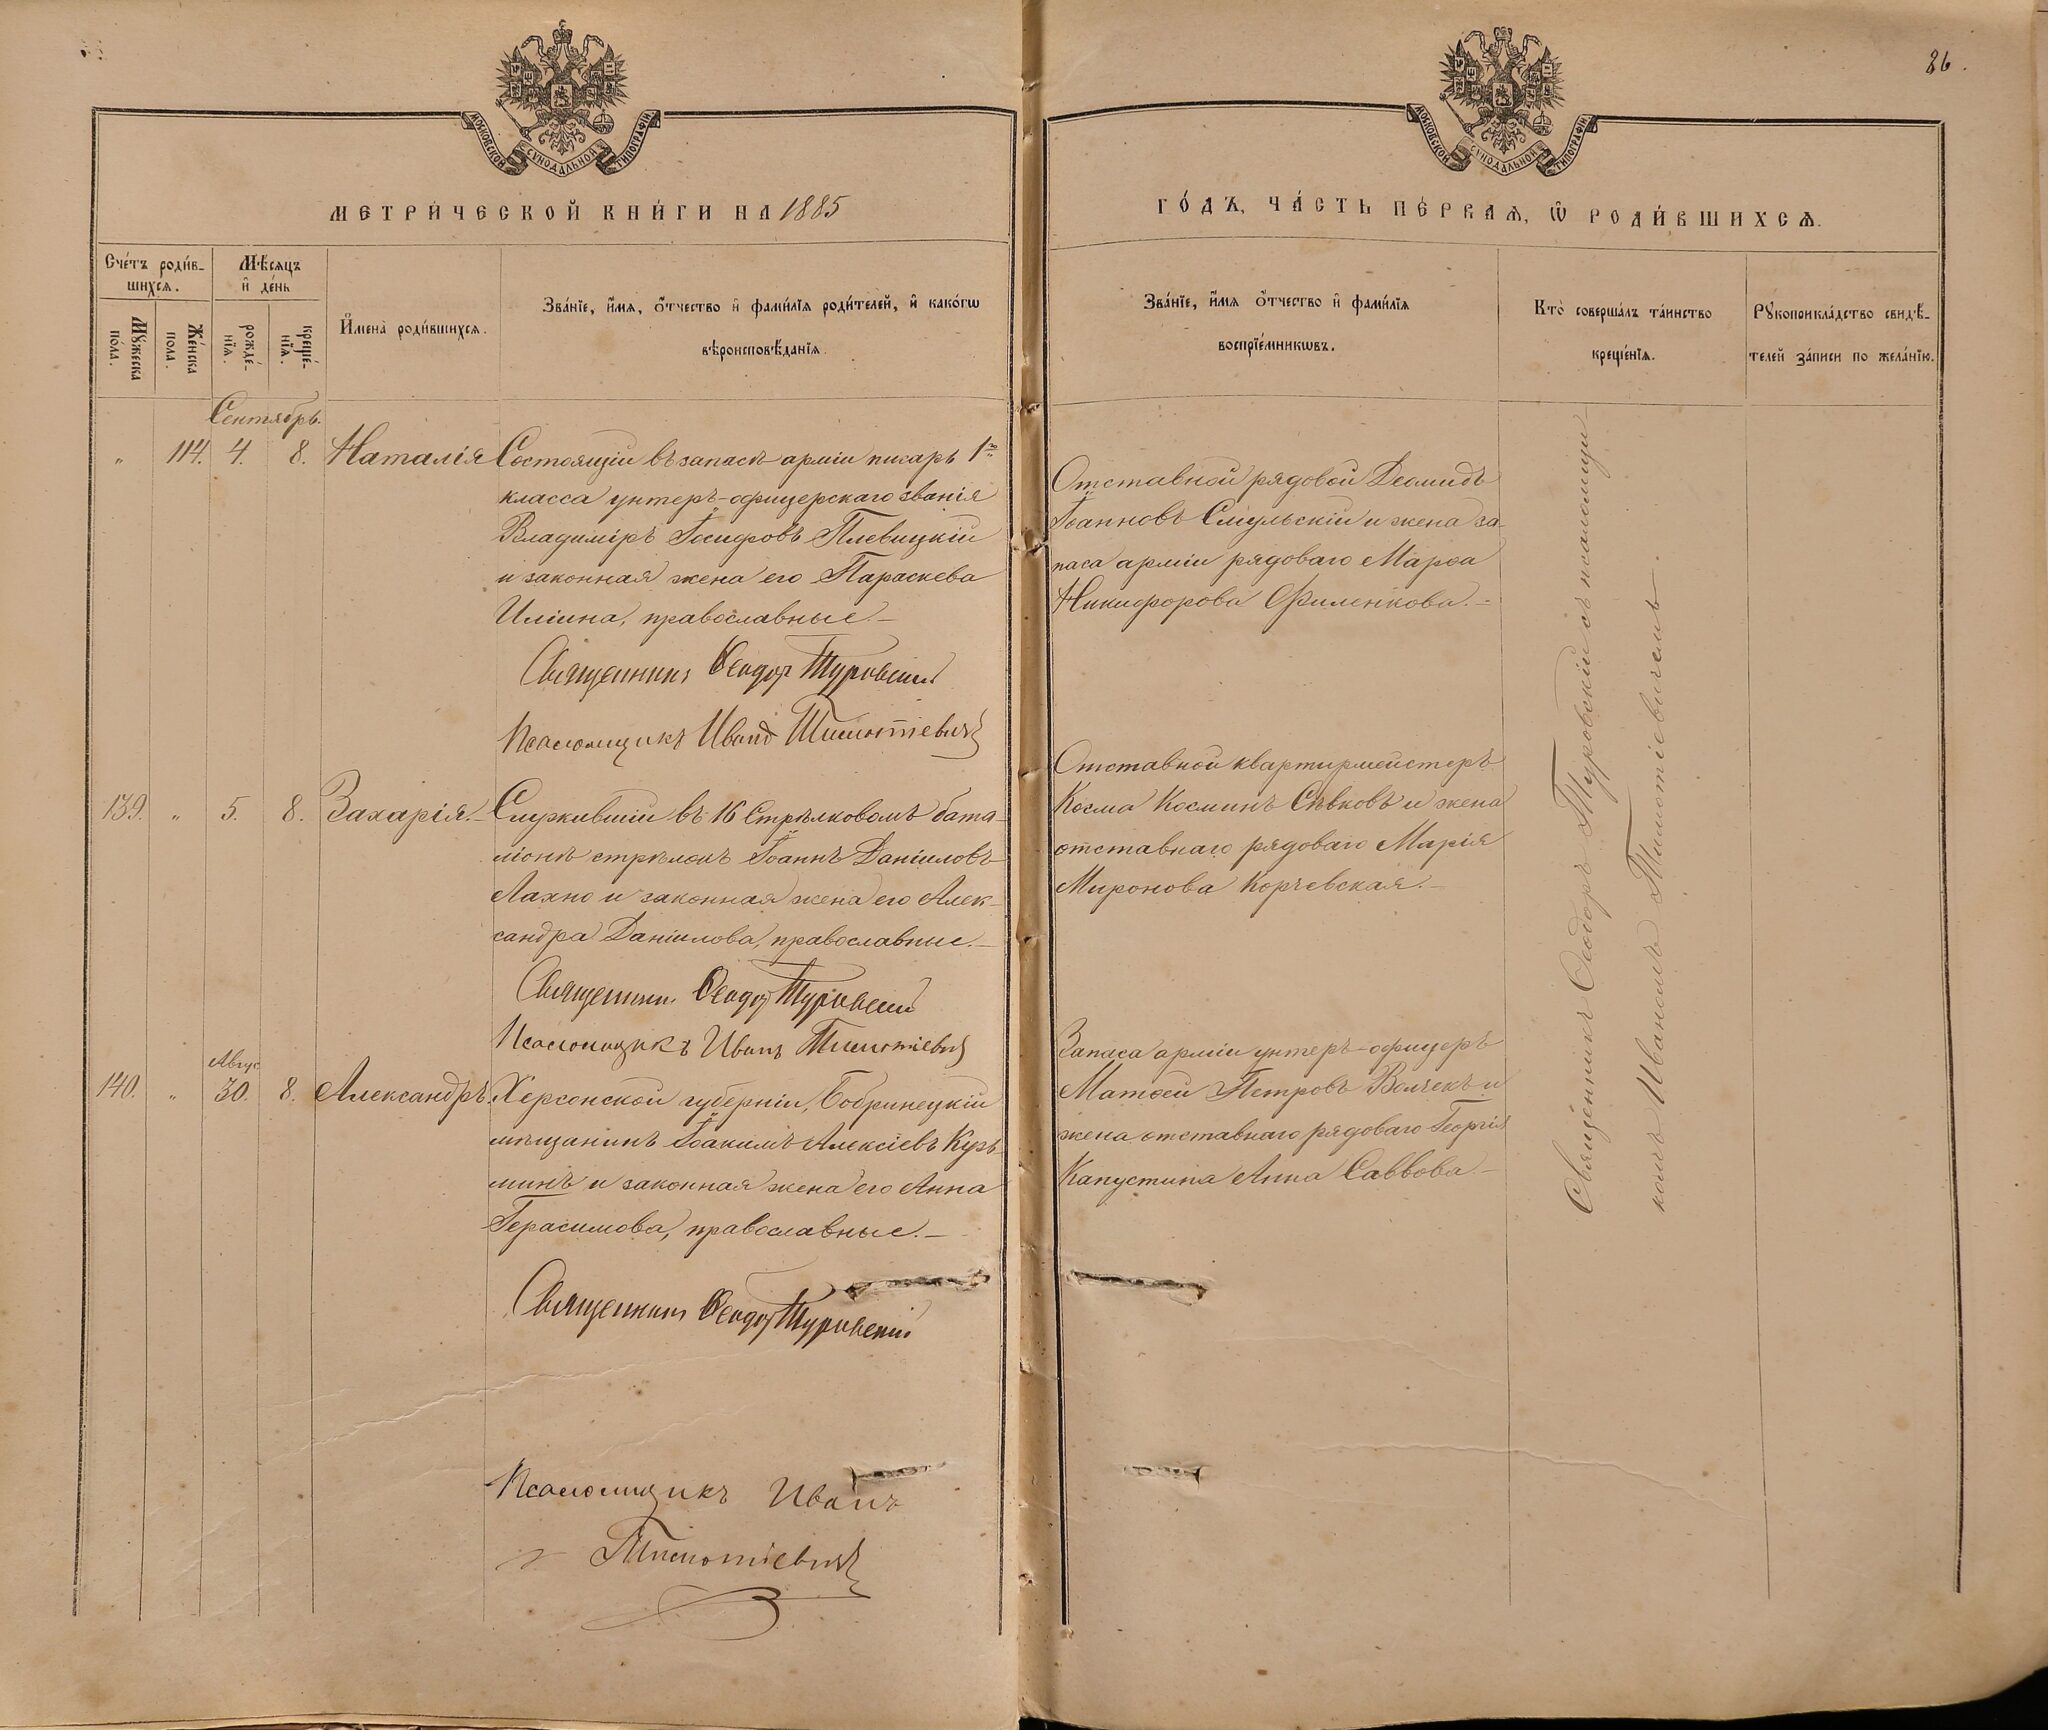 86.
МОСКОВСКОЙ СѴНОДАЛЬНОЙ ТИПОГРАФІИ
МОСКОВСКОЙ СѴНОДАЛЬНОЙ ТИПОГРАФІИ
МЕТРИ́ЧЕСКОЙ КНИ́ГИ НА 1885
ГО́ДЪ, ЧА́СТЬ ПЕ́РВАѦ, Ѿ РОДИ́ВШИХСѦ.
Сче́тъ роди́в-
шихсѧ.
Мѣ́сѧцъ
и҆ де́нь
Мꙋжеска
по́ла.
Же́нска
пола.
рожде́-
нїѧ.
креще́-
нїѧ.
И҆мена̀ роди́вшихсѧ.
Зва́нїе, и҆́мѧ, ѻ҆́тчество и҆ фами́лїѧ роди́телей, и҆ како́гѡ
вѣроисповѣ́данїѧ.
Зва́нїе, и҆́мѧ ѻ҆́тчество и҆ фами́лїѧ
воспрїе́мникѡвъ.
Кто̀ соверша́лъ та́инство
креще́нїѧ.
Рꙋкоприкла́дство свидѣ́-
телей за́писи по жела́нїю.
Сентябрь.
„ 114. 4. 8. Наталія
Состоящій въ запасѣ арміи писарь 1го
класса унтеръ-офицерскаго званія
Владиміръ Іосифовъ Плевицкій
и законная жена его Параскева
Иліина, православные.–
Священникъ Ѳеодоръ Туровскій
Псаломщикъ Иванъ Тимотіевичъ
Отставной рядовой Деомидъ
Іоанновъ Смульскій и жена за-
паса арміи рядоваго Марѳа
Никифорова Филенкова.–
139. „ 5. 8. Захарія.–
Служившій въ 16 Стрѣлковомъ бата-
ліонѣ стрѣлокъ Іоаннъ Даніиловъ
Лахно и законная жена его Алек-
сандра Даніилова, православные.–
Священникъ Ѳеодоръ Туровскій
Псаломщикъ Иванъ Тимотіевичъ
Отставной квартирмейстеръ
Косма Косминъ Сѣвковъ и жена
отставнаго рядоваго Марія
Миронова Корчевская.–
Авгус
140. „ 30. 8. Александръ
Херсонской губерніи, Бобринецкій
мѣщанинъ Іоакимъ Алексіевъ Кузь-
минъ и законная жена его Анна
Герасимова, православные.–
Священникъ Ѳеодоръ Туровскій
Псаломщикъ Иванъ
Тимотіевичъ
Запаса арміи унтеръ-офицеръ
Матѳей Петровъ Волчекъ и
жена отставнаго рядоваго Георгія
Капустина Анна Саввова.–
Священникъ Ѳеодоръ Туровскій съ псаломщи-
комъ Иваномъ Тимотіевичемъ.